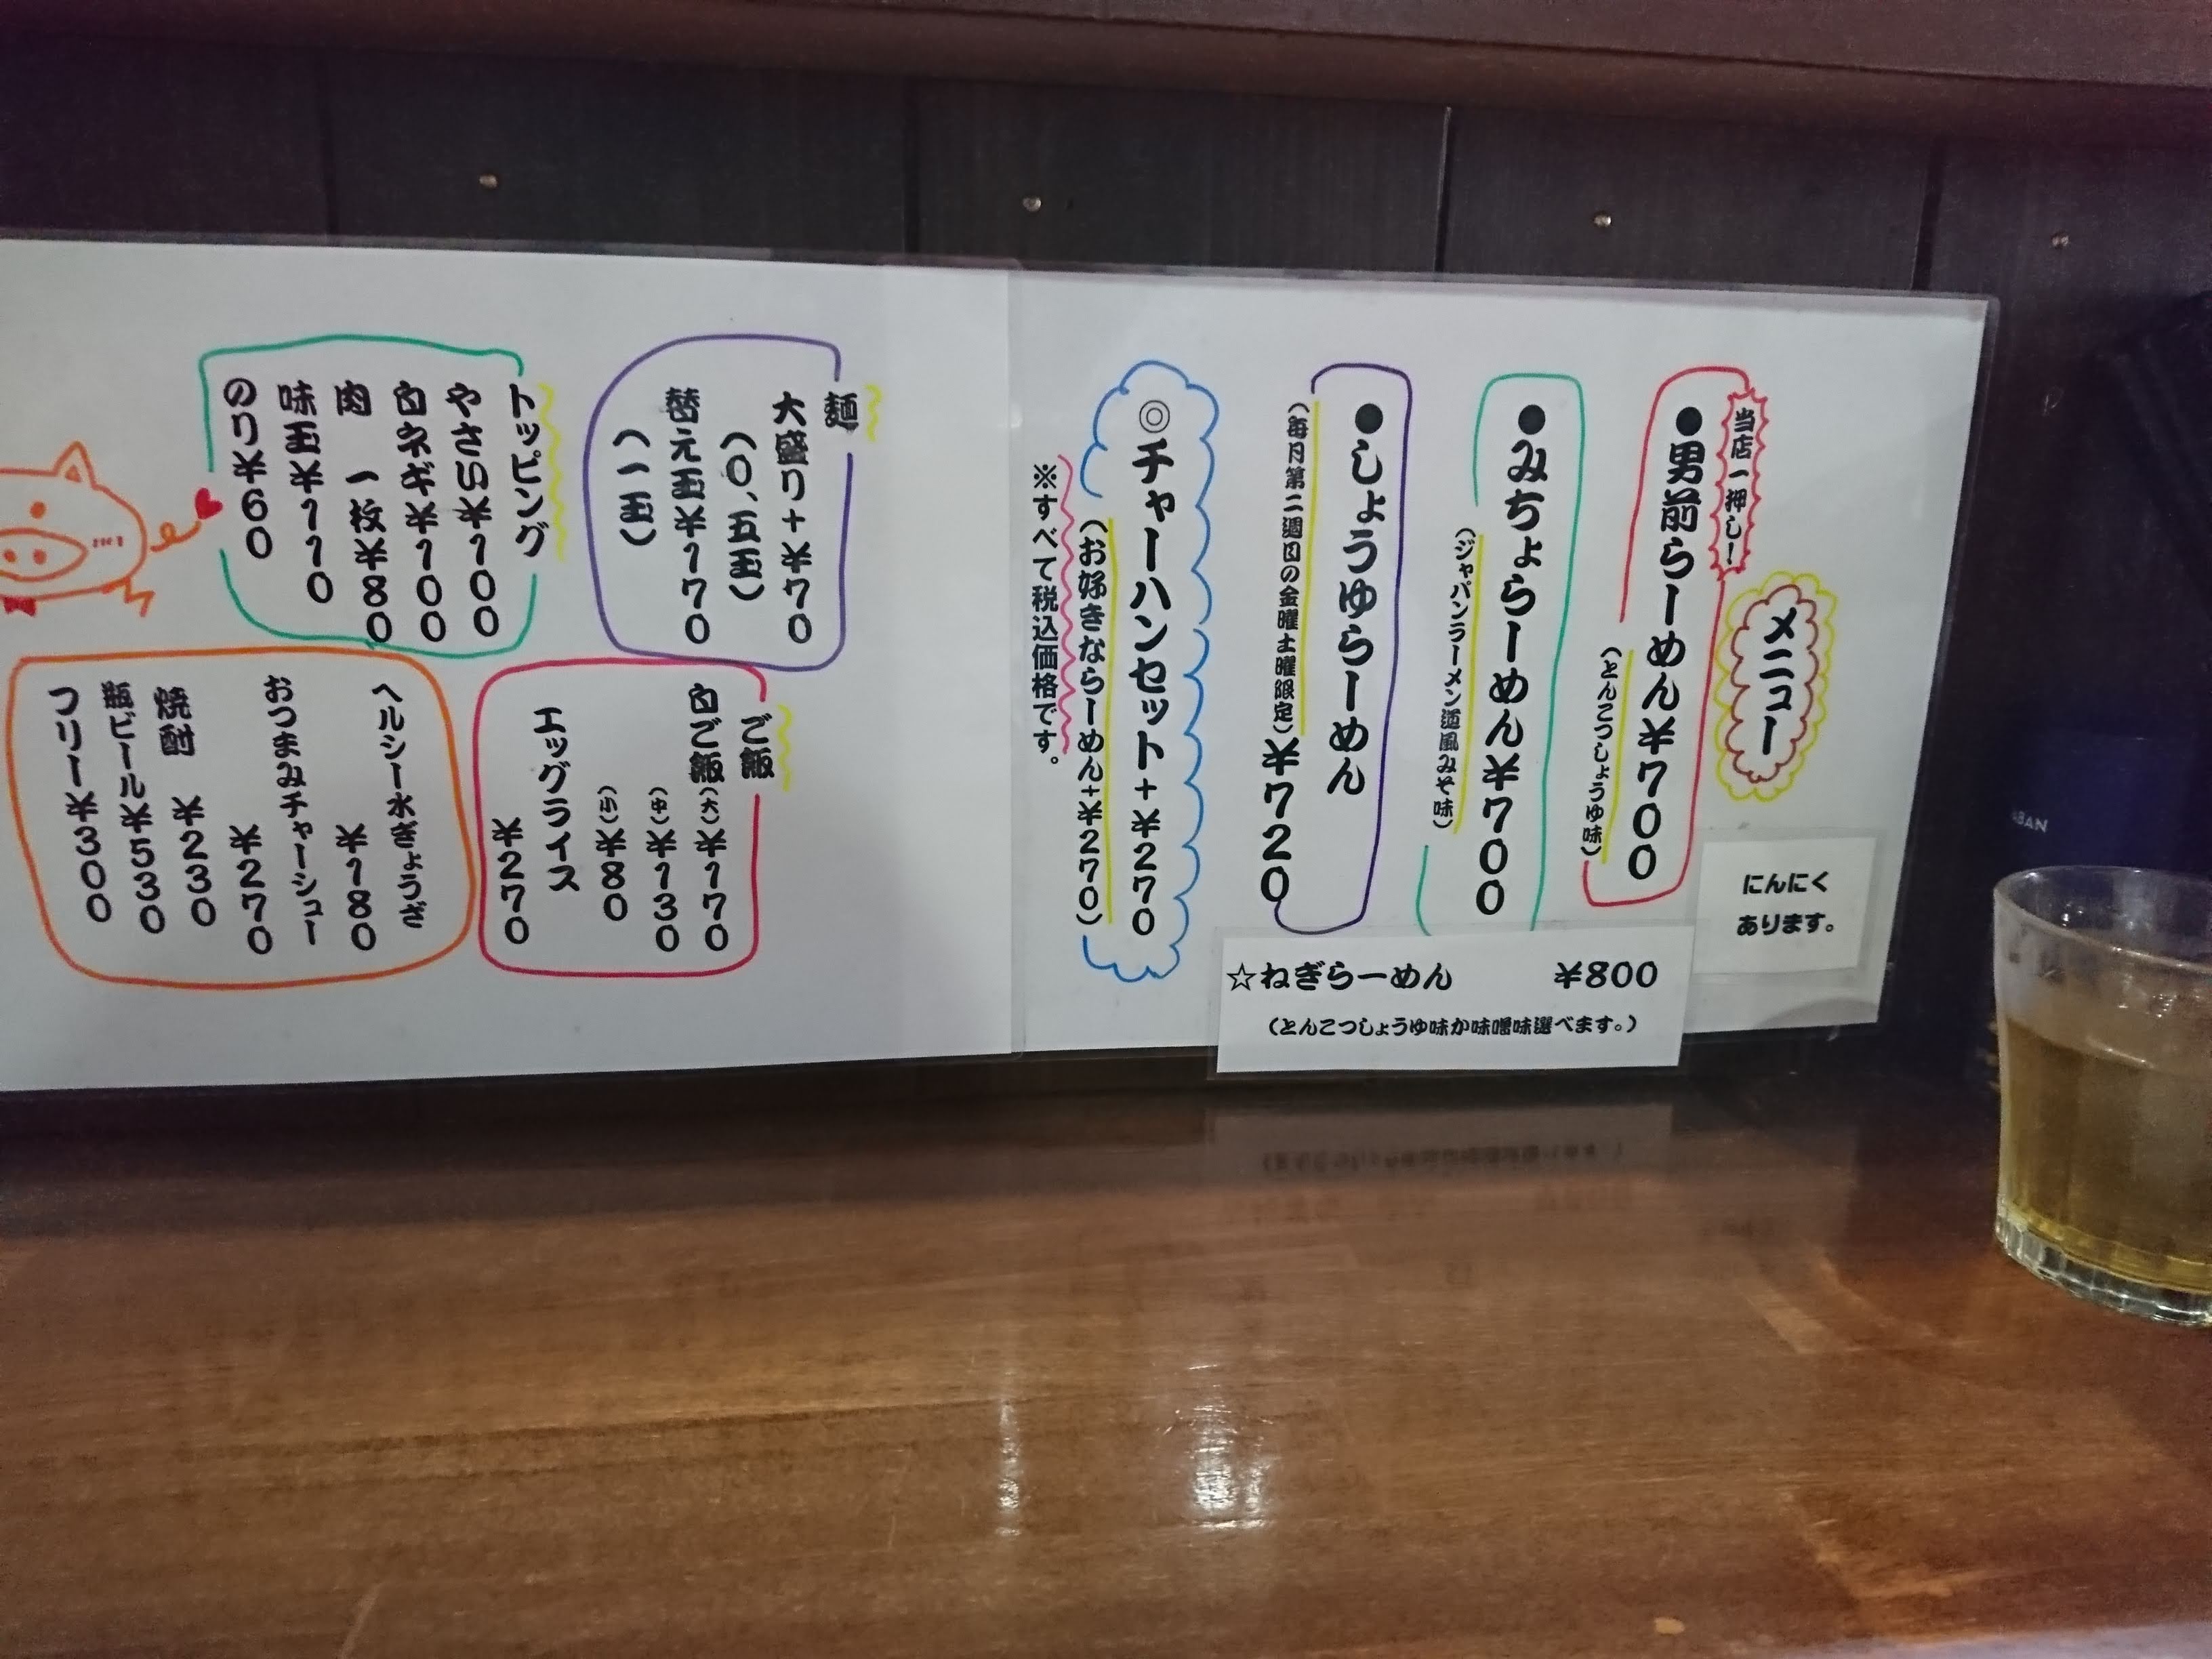 メニュー
当店一押し！
●男前らーめん¥700
（とんこつしょうゆ味）
●みちょらーめん¥700
（ジャパンラーメン道風みそ味）
●しょうゆらーめん
（毎月第二週目の金曜土曜限定）¥720
◎チャーハンセット+¥270
（お好きならーめん+¥270）
※すべて税込価格です。
にんにく
あります。
☆ねぎらーめん ¥800
（とんこつしょうゆ味か味噌味選べます。）
麺
大盛り+¥70
（0、五玉）
替え玉¥170
（一玉）
ご飯
白ご飯（大）¥170
（中）¥130
（小）¥80
エッグライス
¥270
トッピング
やさい¥100
白ネギ¥100
肉 一枚¥80
味玉¥110
のり¥60
ヘルシー水ぎょうざ
¥180
おつまみチャーシュー
¥270
焼酎 ¥230
瓶ビール¥530
フリー¥300